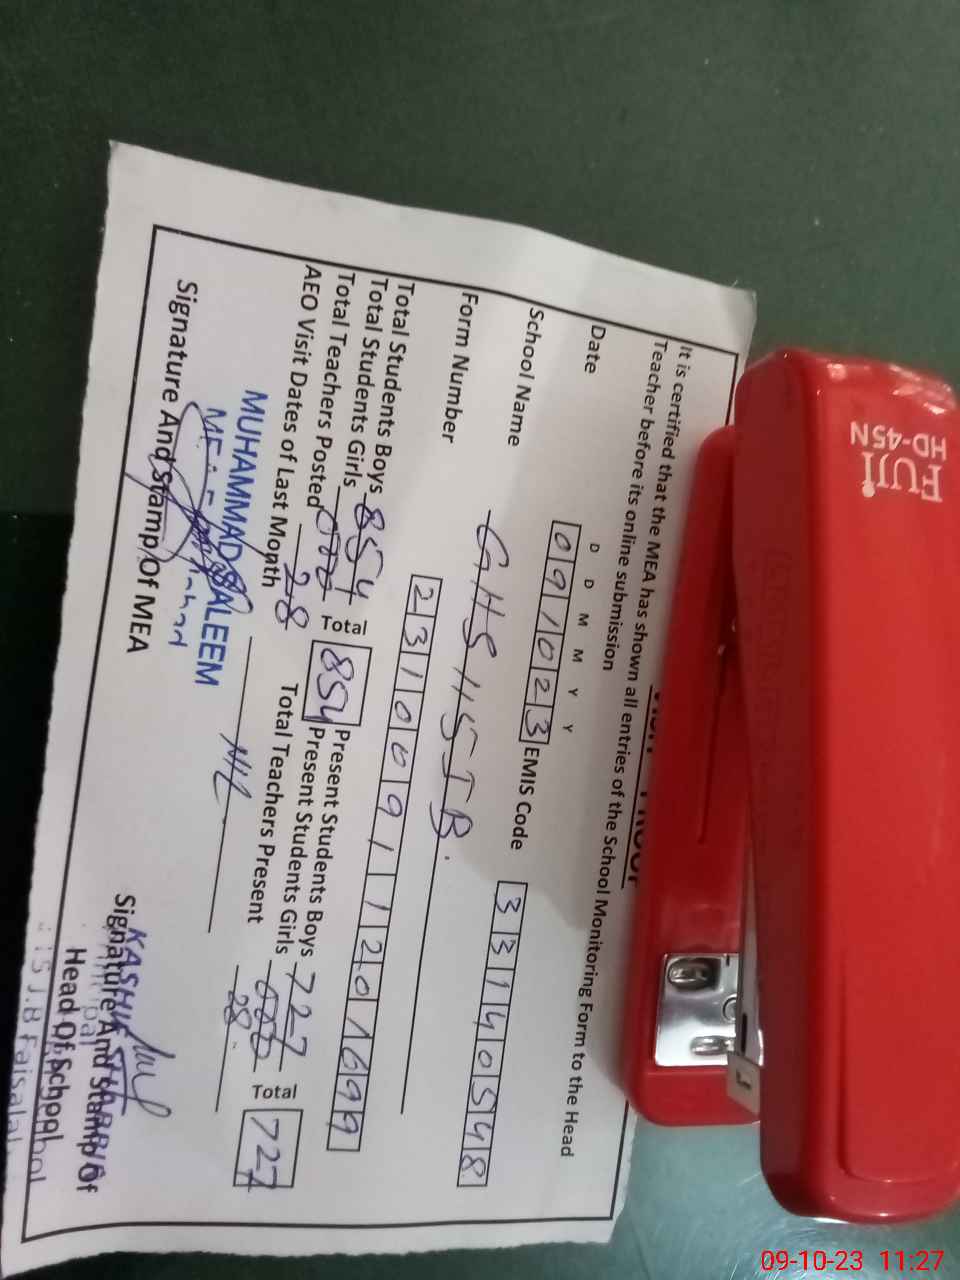 It is certified that the MEA has shown all entries of the School Monitoring Form to the Head
Teacher before its online submission
D D M M Y Y
Date 091023 EMIS Code 33140548
School Name GHS 115 J B.
Form Number 2310091120
Total Students Boys 854 Total 854 Present Students Boys 727 Total 727
Total Students Girls 000 Present Students Girls 000
Total Teachers Posted 28 Total Teachers Present 28
AEO Visit Dates of Last Month NIL
MUHAMMAD SALEEM
Signature And Stamp Of MEA
KASHIF
Signature And Stamp Of
Head Of School
J.B Faisala
FUJI
HD-45N
09-10-23 11:27